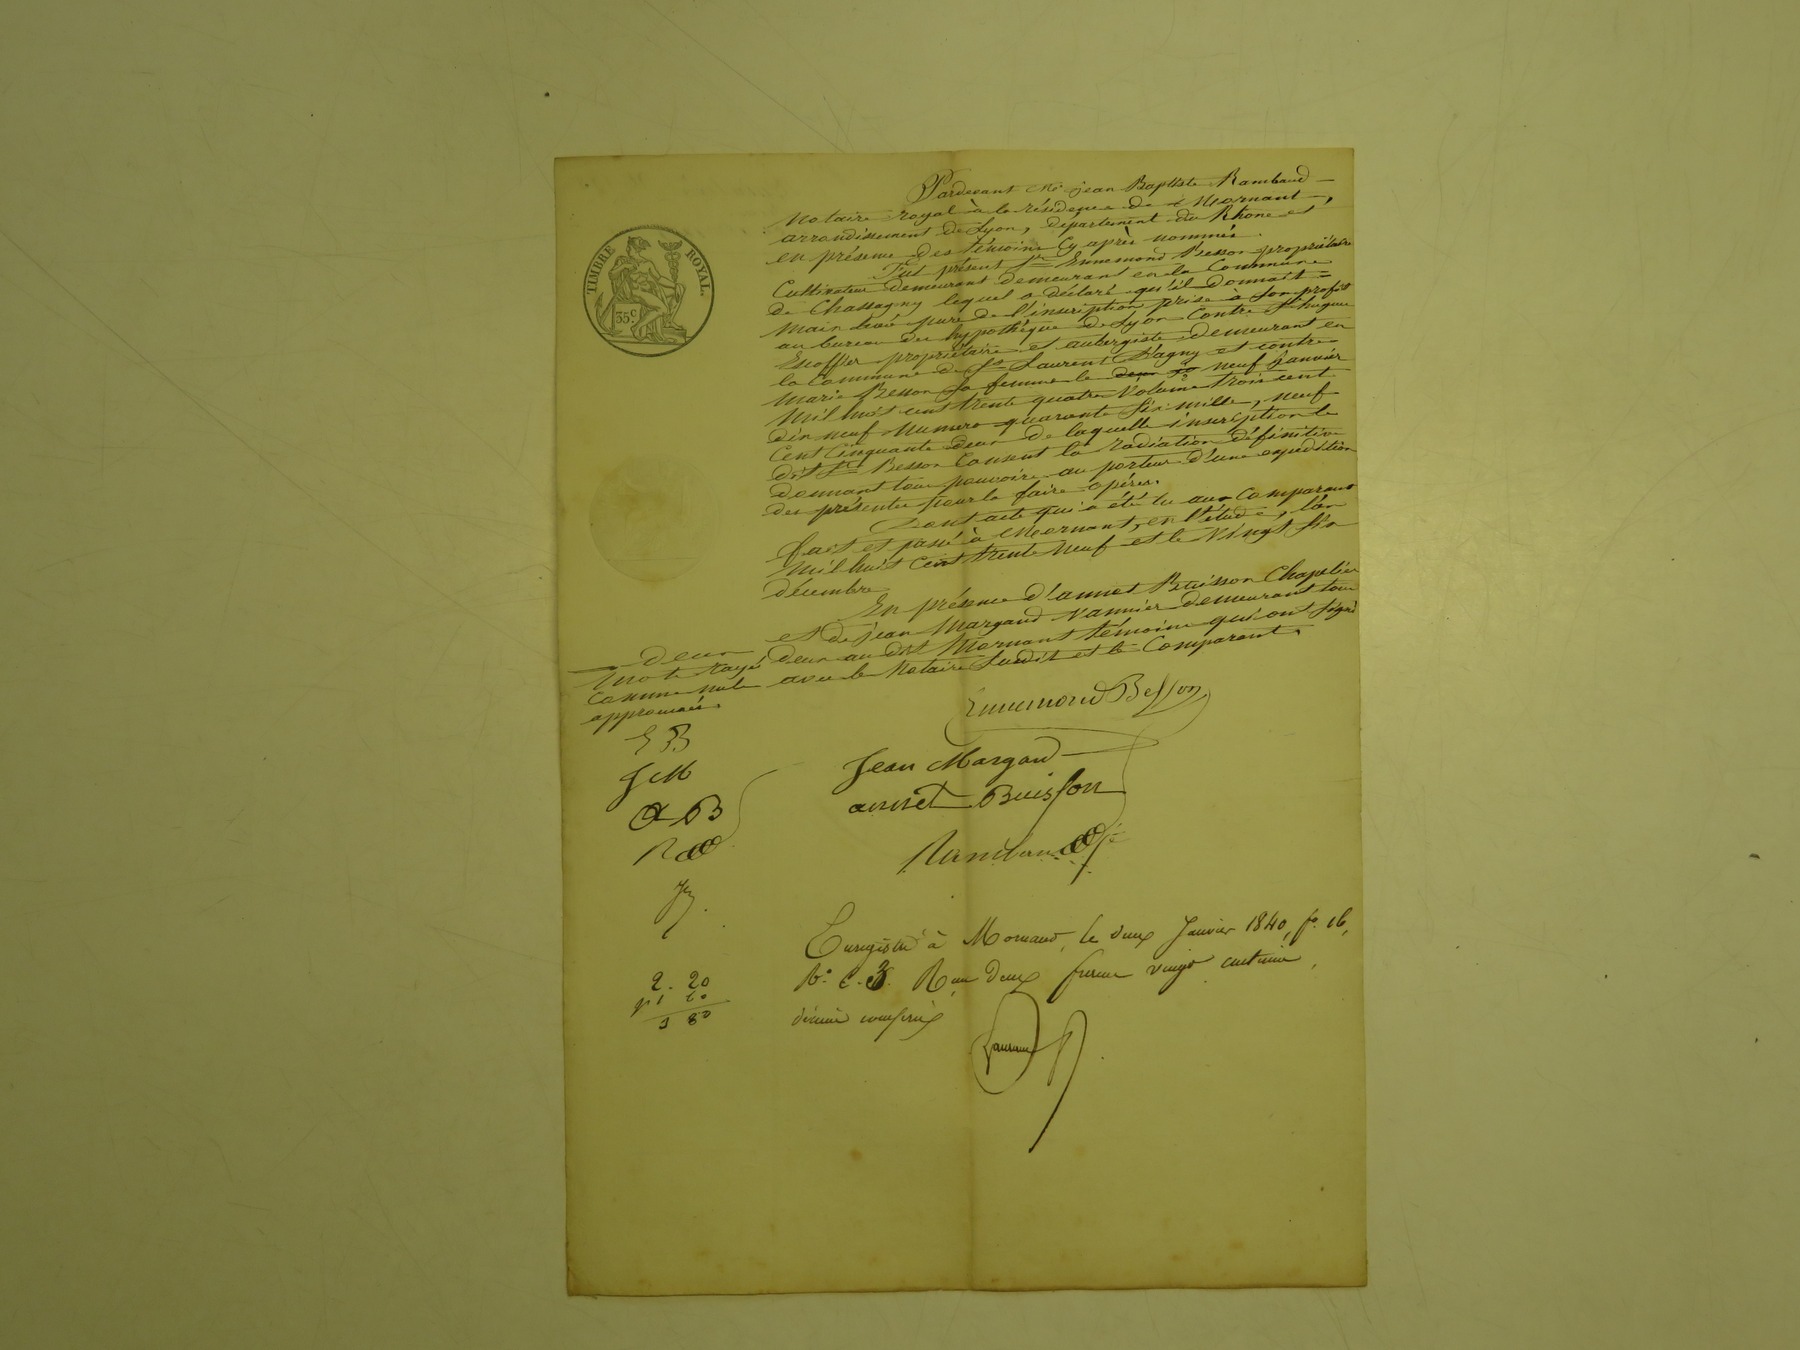 TIMBRE ROYAL.
35c.
Pardevant Me jean Baptiste Rambaud
Notaire royal à la résidence de Mornant,
arrondissement de Lyon, département du Rhone et
en présence des témoins Cy après nommés.
Fut présent Sr Ennemond Besson propriétaire
Cultivateur demeurant demeurant en la Commune
de Chassagny lequel a déclaré qu'il donnait
main levé pure de l'inscription prise à son profit
au bureau des hypothèque de Lyon Contre Sr hugue
Escoffier propriétaire et aubergiste demeurant en
la Commune de St Laurent D'agny et contre
Marie Besson Sa femme le deux neuf Janvier
Mil huit cent trente quatre Volume trois cent
dix neuf Numero quarante Six mille, neuf
Cent Cinquante deux de laquelle inscription le
dit Sr Besson Consent la radiation définitive
donnant tous pouvoirs au porteur d'une expédition
des présentes pour la faire opérer.
Dont acte qui a été lu aux Comparant
fait et passé à Mornant, en l'étude, l'an
Mil huit Cent trente Neuf et le Vingt Six
décembre
En présence d'annet Buisson Chapelier
et de jean Margaud Vannier demeurant tous
deux au dit Mornant témoins qui ont Signé
avec le Notaire Susdit et le Comparant.
deux
mots rayés
Comme nuls
approuvés
EB
JM
AB
Ennemond Besson
Jean Margaud
annet Buisson
Rambaud
Enregistré à Mornant, le deux Janvier 1840, fo 16,
Vo C. 3. Reçu deux francs vingt centimes,
décime compris
2. 20